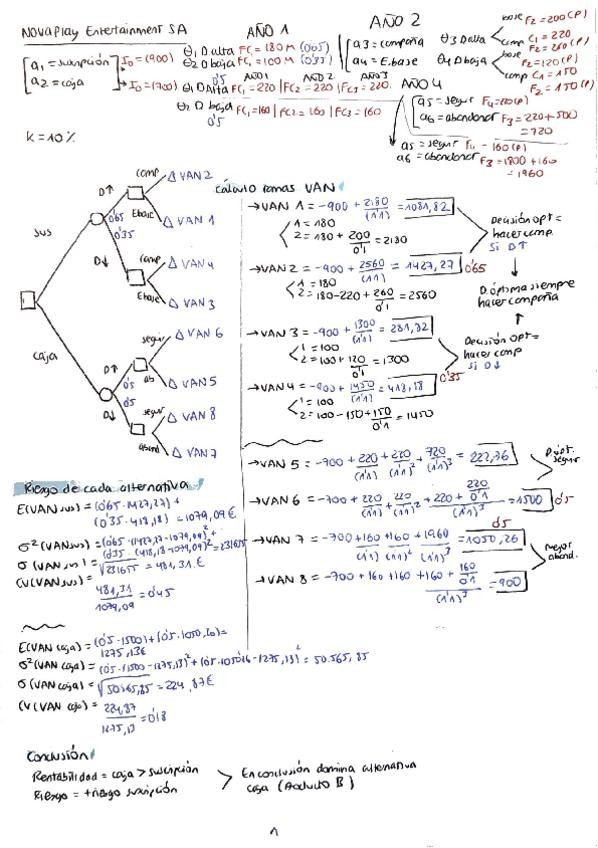 NOVAPlay Entertainment SA
AÑO 1
AÑO 2
a1 = suscripción I0 = (900)
a2 = caja I0 = (700)
θ1 D alta FC1 = 180 M (0'65)
θ2 D baja FC1 = 100 M (0'35)
a3 = compañia
a4 = E.base
θ3 D alta
base F2 = 200 (P)
comp C1 = 220
F2 = 260 (P)
θ4 D baja
F2 = 120 (P)
comp C1 = 150
F2 = 150 (P)
0'5 AÑO1 AÑO 2 AÑO 3
θ1 D Alta FC1 = 220 | FC2 = 220 | FC3 = 220.
θ2 D baja FC1 = 160 | FC2 = 160 | FC3 = 160
0'5
AÑO 4
a5 = seguir
a6 = abandonar F3 = 220 + 500
= 720
a5 = seguir F4 - 160 (P)
a6 = abandonar F3 = 1800 + 160
= 1960
K = 10%
sus
caja
D↑
0'65
0'35
D↓
comp Δ VAN 2
Ebase Δ VAN 1
comp Δ VAN 4
Ebase Δ VAN 3
D↑
0'5
0'5
D↓
seguir Δ VAN 6
ab Δ VAN 5
seguir Δ VAN 8
aband Δ VAN 7
Cálculo ramas VAN
→ VAN 1 = -900 + 2180/(1'1) = 1081,82
1 = 180
2 = 180 + 200/0'1 = 2180
→ VAN 2 = -900 + 2560/(1'1) = 1427,27 0'65
1 = 180
2 = 180 - 220 + 260/0'1 = 2560
Decisión opt =
hacer comp.
Si D↑
D. óptima siempre
hacer compañia
→ VAN 3 = -900 + 1300/(1'1) = 281,82
1 = 100
2 = 100 + 120/0'1 = 1300
→ VAN 4 = -900 + 1450/(1'1) = 418,18 0'35
1 = 100
2 = 100 - 150 + 150/0'1 = 1450
Decisión opt =
hacer comp
Si D↓
→ VAN 5 = -700 + 220/(1'1) + 220/(1'1)² + 720/(1'1)³ = 222,76
→ VAN 6 = -700 + 220/(1'1) + 220/(1'1)² + (220 + 220/0'1)/(1'1)³ = 1500 0'5
D. opt.
seguir
→ VAN 7 = -700 + 160/(1'1) + 160/(1'1)² + 1960/(1'1)³ = 1050,26 0'5
→ VAN 8 = -700 + 160 + 160 + 160 + 160/0'1 /(1'1)³ = 900
Mejor
aband.
Riesgo de cada alternativa
E(VAN sus) = (0'65 · 1427,27) +
(0'35 · 418,18) = 1079,09 €
σ²(VAN sus) = (0'65 · (1427,27 - 1079,09)² +
(0'35 · (418,18 - 1079,09)² = 231655
σ (VAN sus) = √231655 = 481,31 €
CV(VAN sus) =
481,31/1079,09 = 0'45
E(VAN caja) = (0'5 · 1500) + (0'5 · 1050,26) =
1275,13 €
σ²(VAN caja) = (0'5 · (1500 - 1275,13)² + (0'5 · 1050'26 - 1275,13)² = 50.565,85
σ(VAN caja) = √50565,85 = 224,87 €
CV(VAN caja) =
224,87/1275,13 = 0'18
Conclusión
Rentabilidad = caja > suscripción
Riesgo = + riesgo suscripción
En conclusión domina alternativa
caja (Producto B)
1